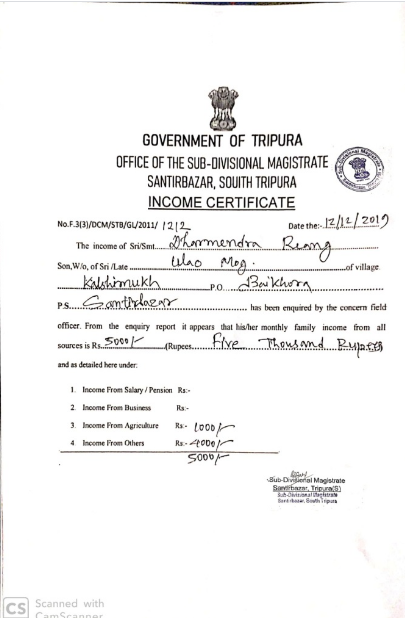 GOVERNMENT OF TRIPURA
OFFICE OF THE SUB-DIVISIONAL MAGISTRATE
SANTIRBAZAR, SOUITH TRIPURA
INCOME CERTIFICATE
No.F.3(3)/DCM/STB/GL/2011/ 1212 Date the:- 12/12/2019
The income of Sri/Smt. Dharmendra Reang
Son,W/o, of Sri /Late Ulao Mog. of village
Kalshimukh P.O Baikhora
P.S. Santirbazar has been enquired by the concern field
officer. From the enquiry report it appears that his/her monthly family income from all
sources is Rs. 5000/- (Rupees Five Thousand Rupees
and as detailed here under:
1. Income From Salary / Pension Rs:-
2. Income From Business Rs:-
3. Income From Agriculture Rs:- 1000/-
4. Income From Others Rs:- 4000/-
5000/-
Sub-Divisional Magistrate
Santirbazar, Tripura(S)
Sub-Divisional Magistrate
Santirbazar, South Tripura
CS Scanned with
CamScanner